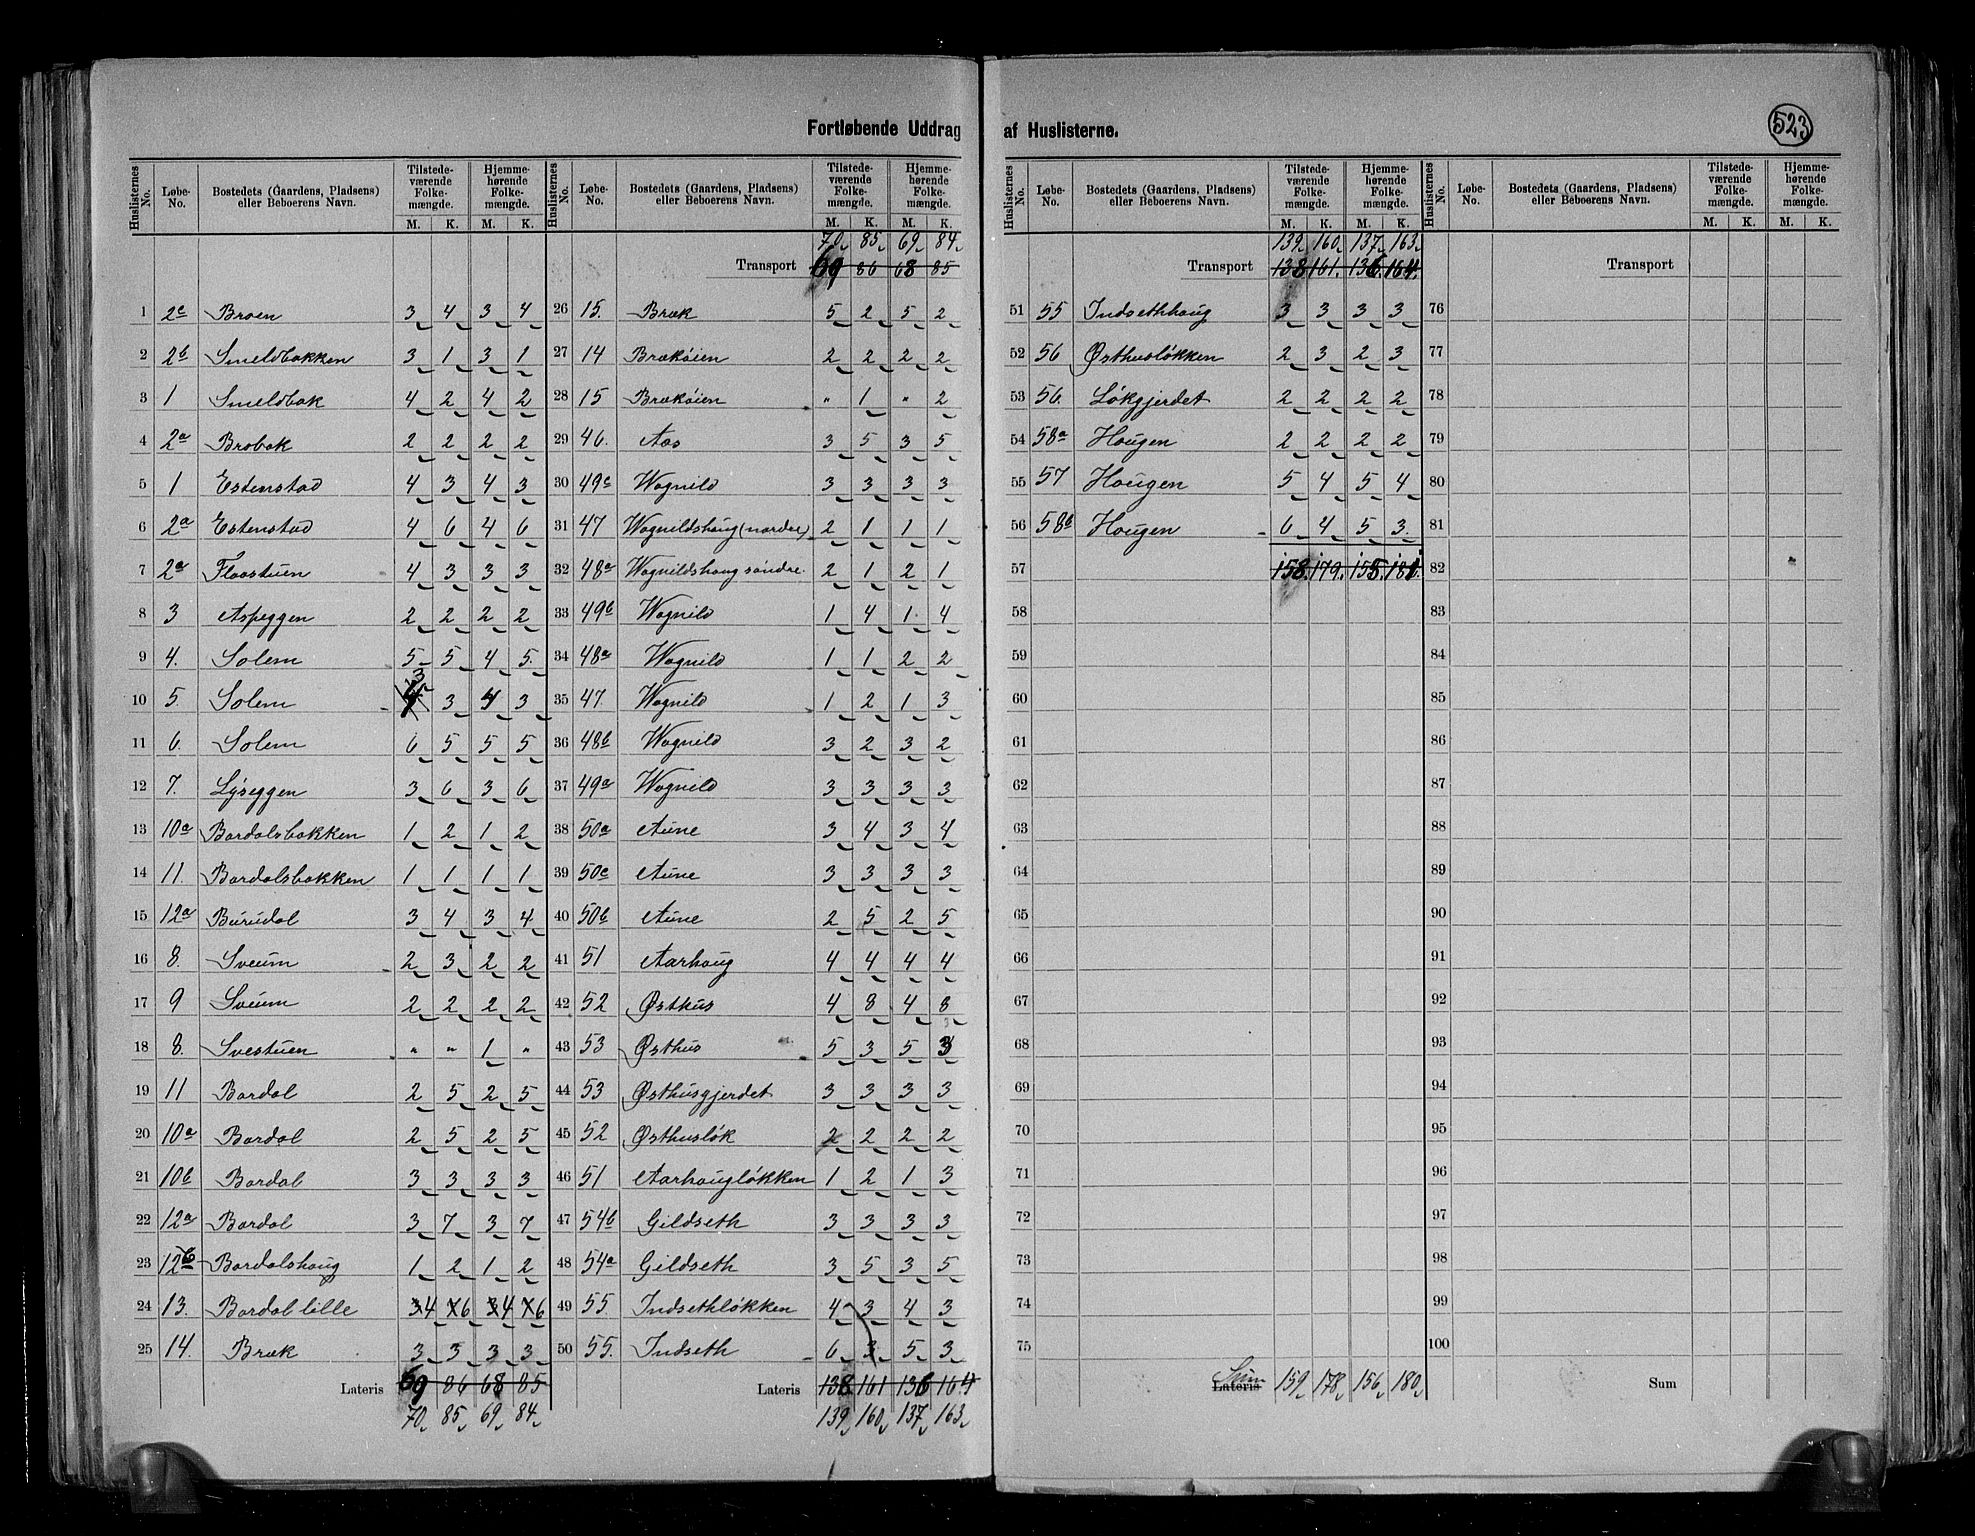 Fortløbende Uddrag af Huslisterne.
523
Huslisternes No. Løbe-No. Bostedets (Gaardens, Pladsens) eller Beboerens Navn. Tilstedeværende Folkemængde. M. K. Hjemmehørende Folkemængde. M. K.
1 2c Broen 3 4 3 4
2 2b Smeldbakken 3 1 3 1
3 1 Smeldbak 4 2 4 2
4 2a Brobak 2 2 2 2
5 1 Estenstad 4 3 4 3
6 2a Estenstad 4 6 4 6
7 2a Floostuen 4 3 3 3
8 3 Aspeggen 2 2 2 2
9 4. Solem 5 5 4 5.
10 5. Solem 3 3 4 3
11 6. Solem 6 5 5 5
12 7. Lyseggen 3 6 3 6
13 10a Bardalsbakken 1 2 1 2
14 11. Bardalsbakken 1 1 1 1
15 12a Burudal 3 4 3 4
16 8. Sveum 2 3 2 2
17 9 Sveum 2 2 2 2
18 8. Svestuen " " 1 "
19 11 Bardal 2 5 2 5
20 10a Bardal 2 5 2 5
21 10b Bardal 3 3 3 3
22 12a Bardal 3 7 3 7
23 12b Bardalshaug 1 2 1 2
24 13. Bardal lille 4 6 4 6
25 14. Bræk 3 3 3 3
Lateris 69 86 68 85
70 85 69 84
Huslisternes No. Løbe-No. Bostedets (Gaardens, Pladsens) eller Beboerens Navn. Tilstedeværende Folkemængde. M. K. Hjemmehørende Folkemængde. M. K.
70 85 69 84
Transport 69 86 68 85
26 15. Bræk 5 2 5 2
27 14 Brækøien 2 2 2 2
28 15 Brækøien " 1 " 2
29 46. Aas 3 5 3 5
30 49c Wognild 3 3 3 3
31 47 Wognildshaug (nordre) 2 1 1 1
32 48a Wognildshaug søndre. 2 1 2 1
33 49b Wognild 1 4 1 4
34 48a Wognild 1 1 2 2
35 47. Wognild 1 2 1 3
36 48b Wognild 3 2 3 2
37 49a Wognild 3 3 3 3
38 50a Aune 3 4 3 4
39 50c Aune 3 3 3 3
40 50b Aune 2 5 2 5
41 51 Aarhaug 4 4 4 4
42 52 Østhus 4 8 4 8
43 53 Østhus 5 3 5 3
44 53 Østhusgjerdet 3 3 3 3
45 52 Østhusløk 2 2 2 2
46 51 Aarhaugløkken 1 2 1 3
47 54b Gildseth 3 3 3 3
48 54a Gildseth 3 5 3 5
49 55. Indsethløkken 4 3 4 3
50 55. Indseth 6 3 5 3
Lateris 138 161 136 164
139 160 137 163
Huslisternes No. Løbe-No. Bostedets (Gaardens, Pladsens) eller Beboerens Navn. Tilstedeværende Folkemængde. M. K. Hjemmehørende Folkemængde. M. K.
139 160 137 163
Transport 138 161. 136. 164.
51 55 Indsethhaug 3 3 3 3
52 56 Østhusløkken 2 3 2 3
53 56. Løkgjerdet 2 2 2 2
54 58a Hougen 2 2 2 2
55 57 Hougen 5 4 5 4
56 58b Hougen 6 4 5 3.
57 158. 179. 155. 181.
58
59
60
61
62
63
64
65
66
67
68
69
70
71
72
73
74
75
Lateris Sum 159 178 156 180
Huslisternes No. Løbe-No. Bostedets (Gaardens, Pladsens) eller Beboerens Navn. Tilstedeværende Folkemængde. M. K. Hjemmehørende Folkemængde. M. K.
Transport
76
77
78
79
80
81
82
83
84
85
86
87
88
89
90
91
92
93
94
95
96
97
98
99
100
Sum